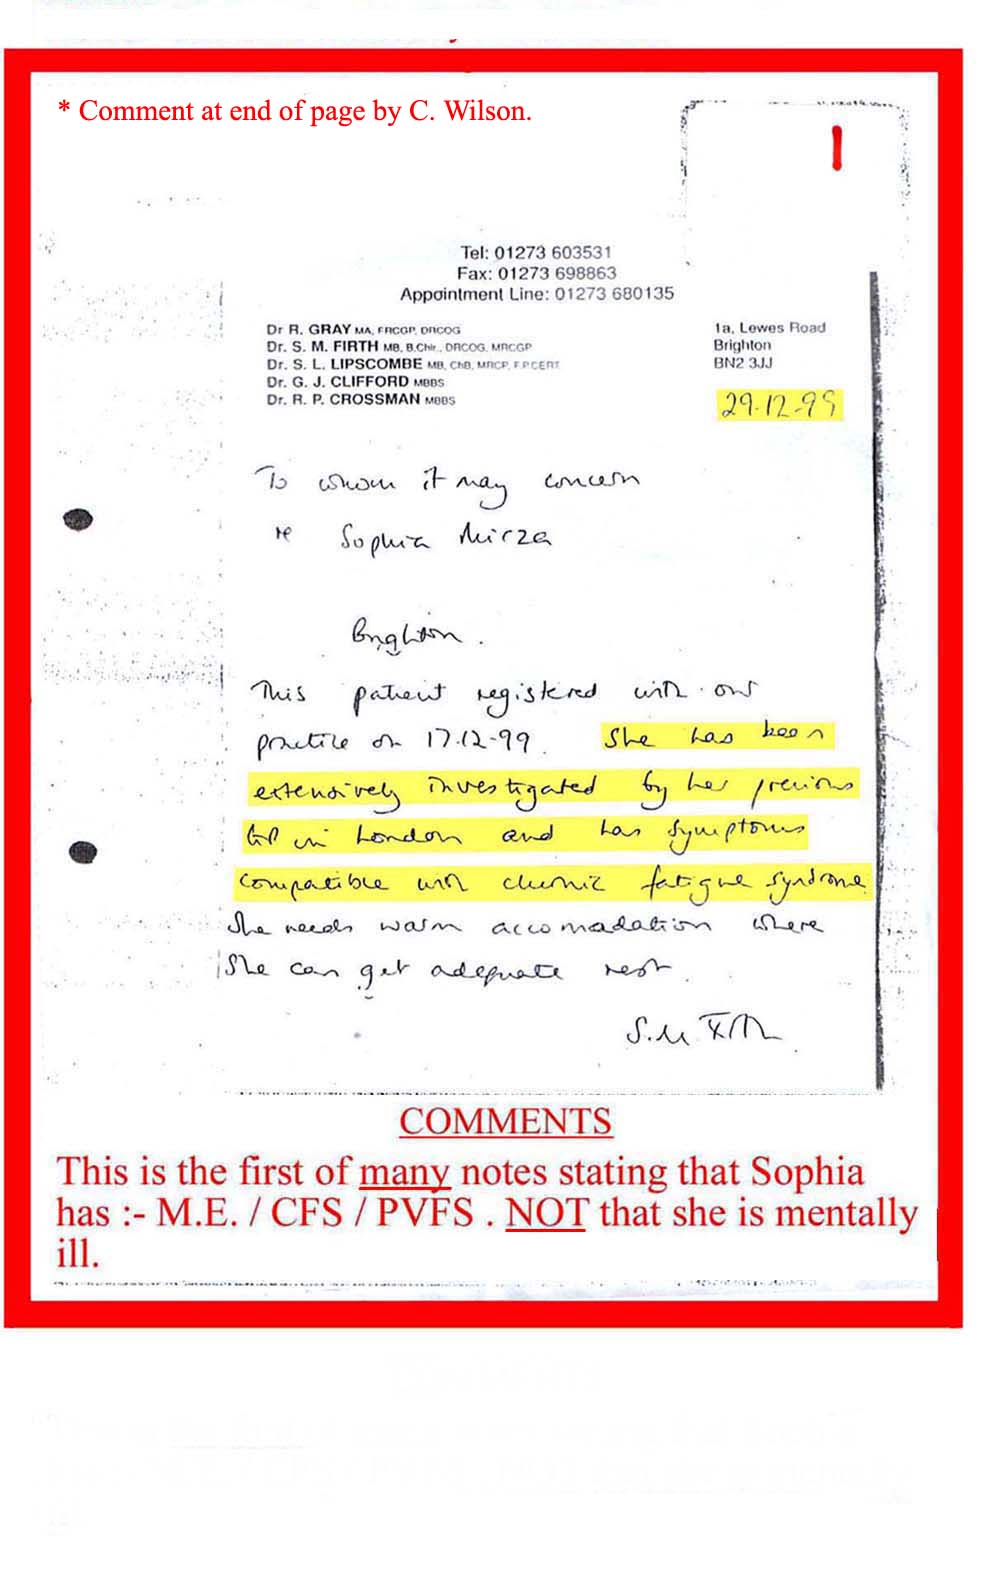 * Comment at end of page by C. Wilson.
1
Tel: 01273 603531
Fax: 01273 698863
Appointment Line: 01273 680135
Dr R. GRAY MA, FRCGP, DRCOG
Dr. S. M. FIRTH MB, B.Chir., DRCOG, MRCGP
Dr. S. L. LIPSCOMBE MB, ChB, MRCP, F.P.CERT
Dr. G. J. CLIFFORD MBBS
Dr. R. P. CROSSMAN MBBS
1a, Lewes Road
Brighton
BN2 3JJ
29.12-99
To whom it may concern
re Sophia Mirza
Brighton.
This patient registered with our
practice on 17.12-99. She has been
extensively investigated by her previous
GP in London and has symptoms
compatible with chronic fatigue syndrome
She needs warm accomadation where
She can get adequate rest.
S.M Firth
COMMENTS
This is the first of many notes stating that Sophia
has :- M.E. / CFS / PVFS . NOT that she is mentally
ill.